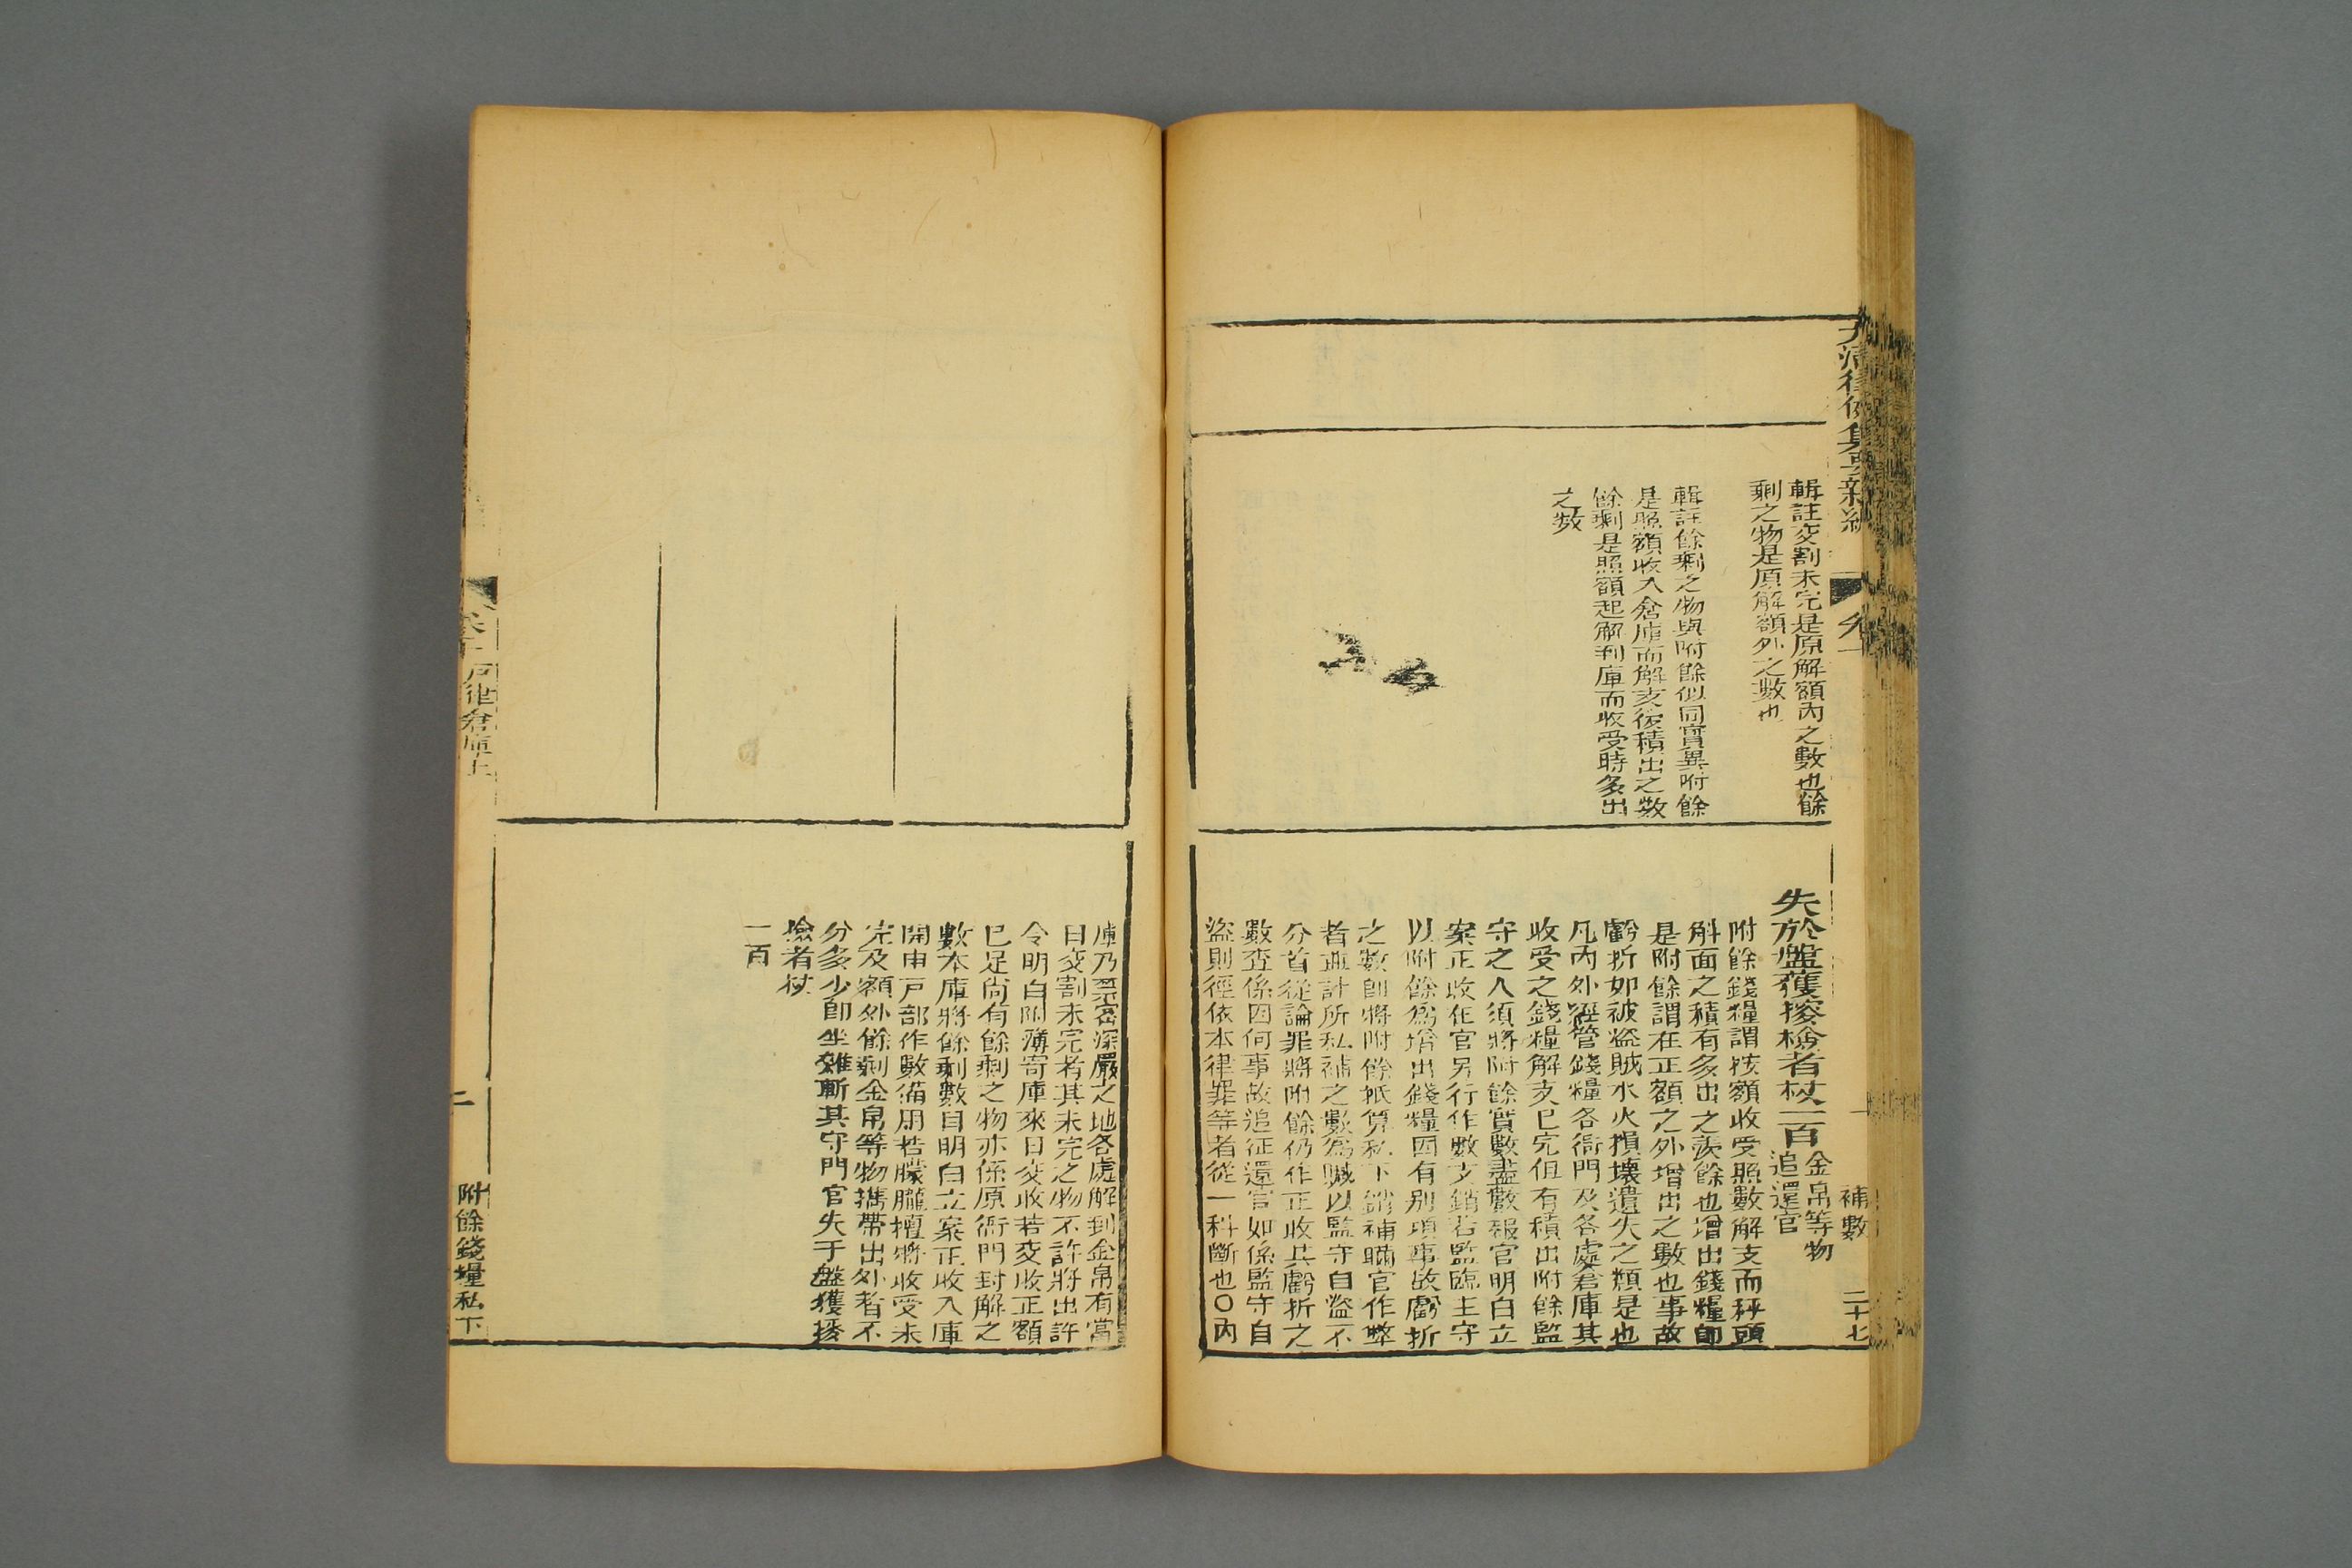 大清律例集要新編
輯註交割未完是原解額內之數也餘
剩之物是原解額外之數也
輯註餘剩之物與附餘似同實異附餘
是照額收入倉庫而解支後積出之數
餘剩是照額起解到庫而收受時多出
之數
失於盤獲搜檢者杖一百
金帛等物
追還官
附餘錢糧謂按額收受照數解支而秤頭
斛面之積有多出之羨餘也增出錢糧卽
是附餘謂在正額之外增出之數也事故
虧折如被盜賊水火損壞遺失之類是也
凡內外經管錢糧各衙門及各處倉庫其
收受之錢糧解支已完但有積出附餘監
守之人須將附餘實數盡數報官明白立
案正收在官另行作數支銷若監臨主守
以附餘爲增出錢糧因有別項事故虧折
之數卽將附餘抵算私下銷補瞞官作弊
者並計所私補之數爲贓以監守自盜不
分首從論罪將附餘仍作正收其虧折之
數查係因何事故追征還官如係監守自
盜則徑依本律罪等者從一科斷也〇內
補數
二十七
庫乃禁密深嚴之地各處解到金帛有當
日交割未完者其未完之物不許將出許
令明白附簿寄庫來日交收若交收正額
已足尙有餘剩之物亦係原衙門封解之
數本庫將餘剩數目明白立案正收入庫
開申戸部作數備用若朦朧擅將收受未
完及額外餘剩金帛等物擕帶出外者不
分多少卽坐雜斬其守門官失于盤獲搜
檢者杖
一百
戸律倉庫上
二
附餘錢糧私下